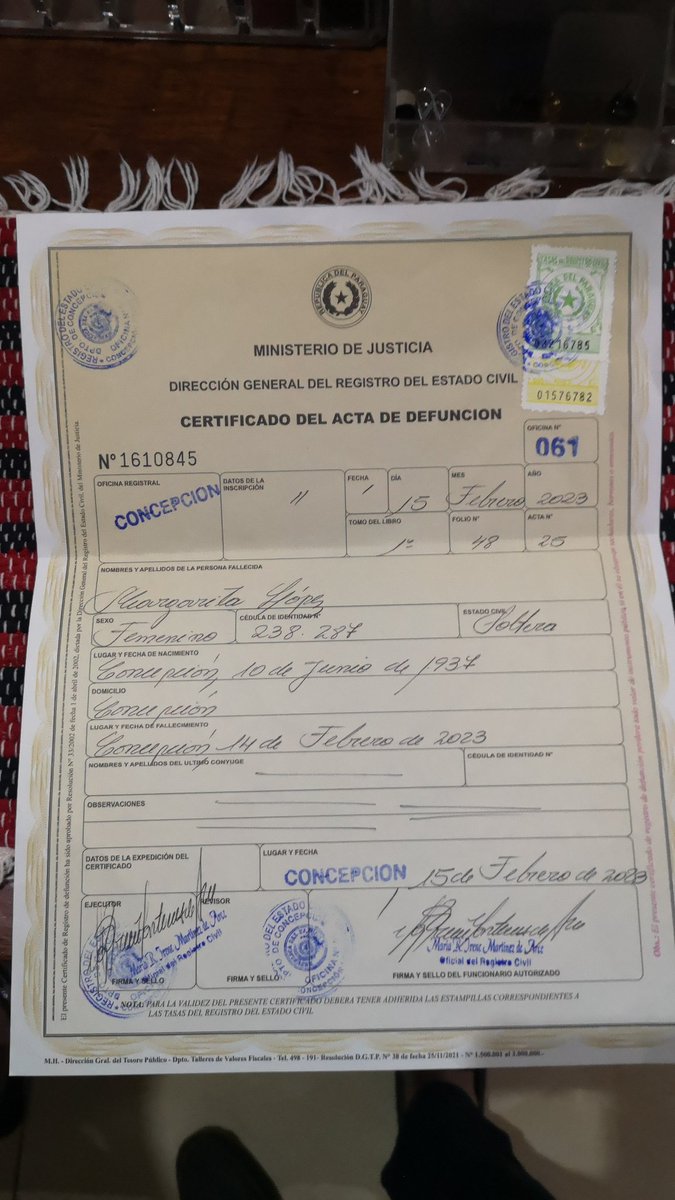 REPUBLICA DEL PARAGUAY
REGISTRO DEL ESTADO
DPTO DE CONCEPCION
OFICINA
CONCEPCION
03216785
01576782
MINISTERIO DE JUSTICIA
DIRECCIÓN GENERAL DEL REGISTRO DEL ESTADO CIVIL
CERTIFICADO DEL ACTA DE DEFUNCION
N° 1610845
OFICINA N°
061
OFICINA REGISTRAL
CONCEPCION
DATOS DE LA INSCRIPCIÓN
FECHA
DÍA
15
MES
Febrero
AÑO
2023
TOMO DEL LIBRO
1°
FOLIO N°
48
ACTA N°
25
NOMBRES Y APELLIDOS DE LA PERSONA FALLECIDA
Margarita López
SEXO
Femenino
CÉDULA DE IDENTIDAD N°
238.287
ESTADO CIVIL
Soltera
LUGAR Y FECHA DE NACIMIENTO
Concepción 10 de Junio de 1937
DOMICILIO
Concepción
LUGAR Y FECHA DE FALLECIMIENTO
Concepción 14 de Febrero de 2023
NOMBRES Y APELLIDOS DEL ULTIMO CONYUGE
CÉDULA DE IDENTIDAD N°
OBSERVACIONES
DATOS DE LA EXPEDICIÓN DEL CERTIFICADO
LUGAR Y FECHA
CONCEPCION 15 de Febrero de 2023
EJECUTOR
REVISOR
María R. Irene Martinez de Arce
Oficial del Registro Civil
FIRMA Y SELLO
FIRMA Y SELLO
María R. Irene Martinez de Arce
Oficial del Registro Civil
FIRMA Y SELLO DEL FUNCIONARIO AUTORIZADO
NOTA: PARA LA VALIDEZ DEL PRESENTE CERTIFICADO DEBERA TENER ADHERIDA LAS ESTAMPILLAS CORRESPONDIENTES A
LAS TASAS DEL REGISTRO DEL ESTADO CIVIL
M.H. - Dirección Gral. del Tesoro Público - Dpto. Talleres de Valores Fiscales - Tel. 498 - 191- Resolución D.G.T.P. N° 38 de fecha 25/11/2021 - N° 1.500.001 al
El presente Certificado de Registro de defunción ha sido aprobado por Resolución N° 33/2002 de fecha 1 de abril de 2002, dictada por la Dirección General del Registro del Estado Civil, del Ministerio de Justicia.
Obs.: El presente certificado de registro de defunción perderá todo valor de instrumento público si en él se observan